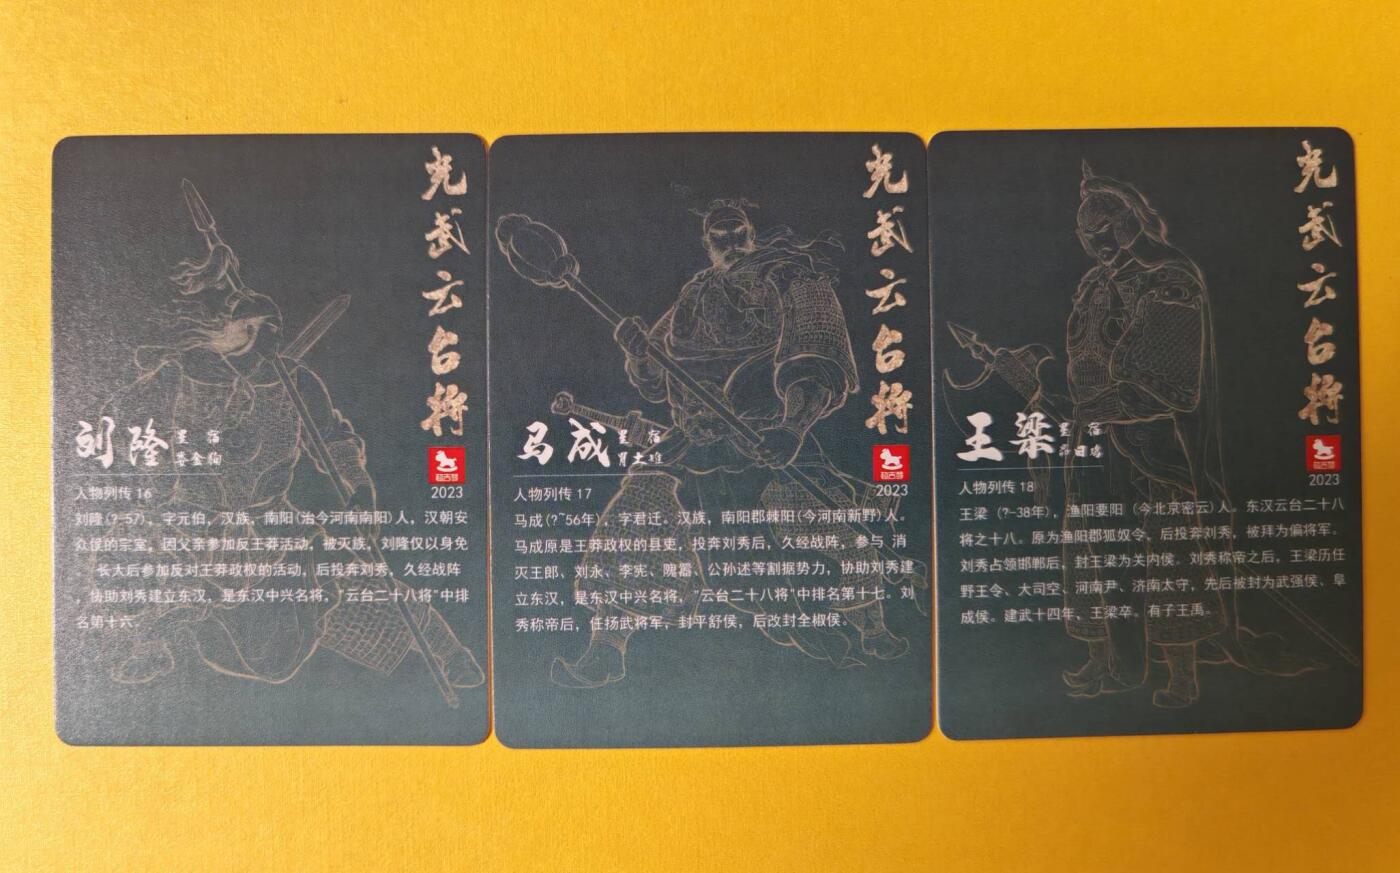 光武云台将
刘隆
星宿
娄金狗
2023
人物列传 16
刘隆(?-57)，字元伯，汉族，南阳(治今河南南阳)人，汉朝安
众侯的宗室，因父亲参加反王莽活动，被灭族，刘隆仅以身免
长大后参加反对王莽政权的活动，后投奔刘秀，久经战阵
，协助刘秀建立东汉，是东汉中兴名将，“云台二十八将”中排
名第十六。
光武云台将
马成
星宿
胃土雉
2023
人物列传 17
马成(?~56年)，字君迁。汉族，南阳郡棘阳(今河南新野)人。
马成原是王莽政权的县吏，投奔刘秀后，久经战阵，参与 消
灭王郎、刘永、李宪、隗嚣、公孙述等割据势力，协助刘秀建
立东汉，是东汉中兴名将，“云台二十八将”中排名第十七。刘
秀称帝后，任扬武将军，封平舒侯，后改封全椒侯。
光武云台将
王梁
星宿
昴日鸡
2023
人物列传 18
王梁 (?-38年)，渔阳要阳 (今北京密云)人。东汉云台二十八
将之十八。原为渔阳郡狐奴令，后投奔刘秀，被拜为偏将军。
刘秀占领邯郸后，封王梁为关内侯。刘秀称帝之后，王梁历任
野王令、大司空、河南尹、济南太守，先后被封为武强侯、阜
成侯。建武十四年，王梁卒。有子王禹。